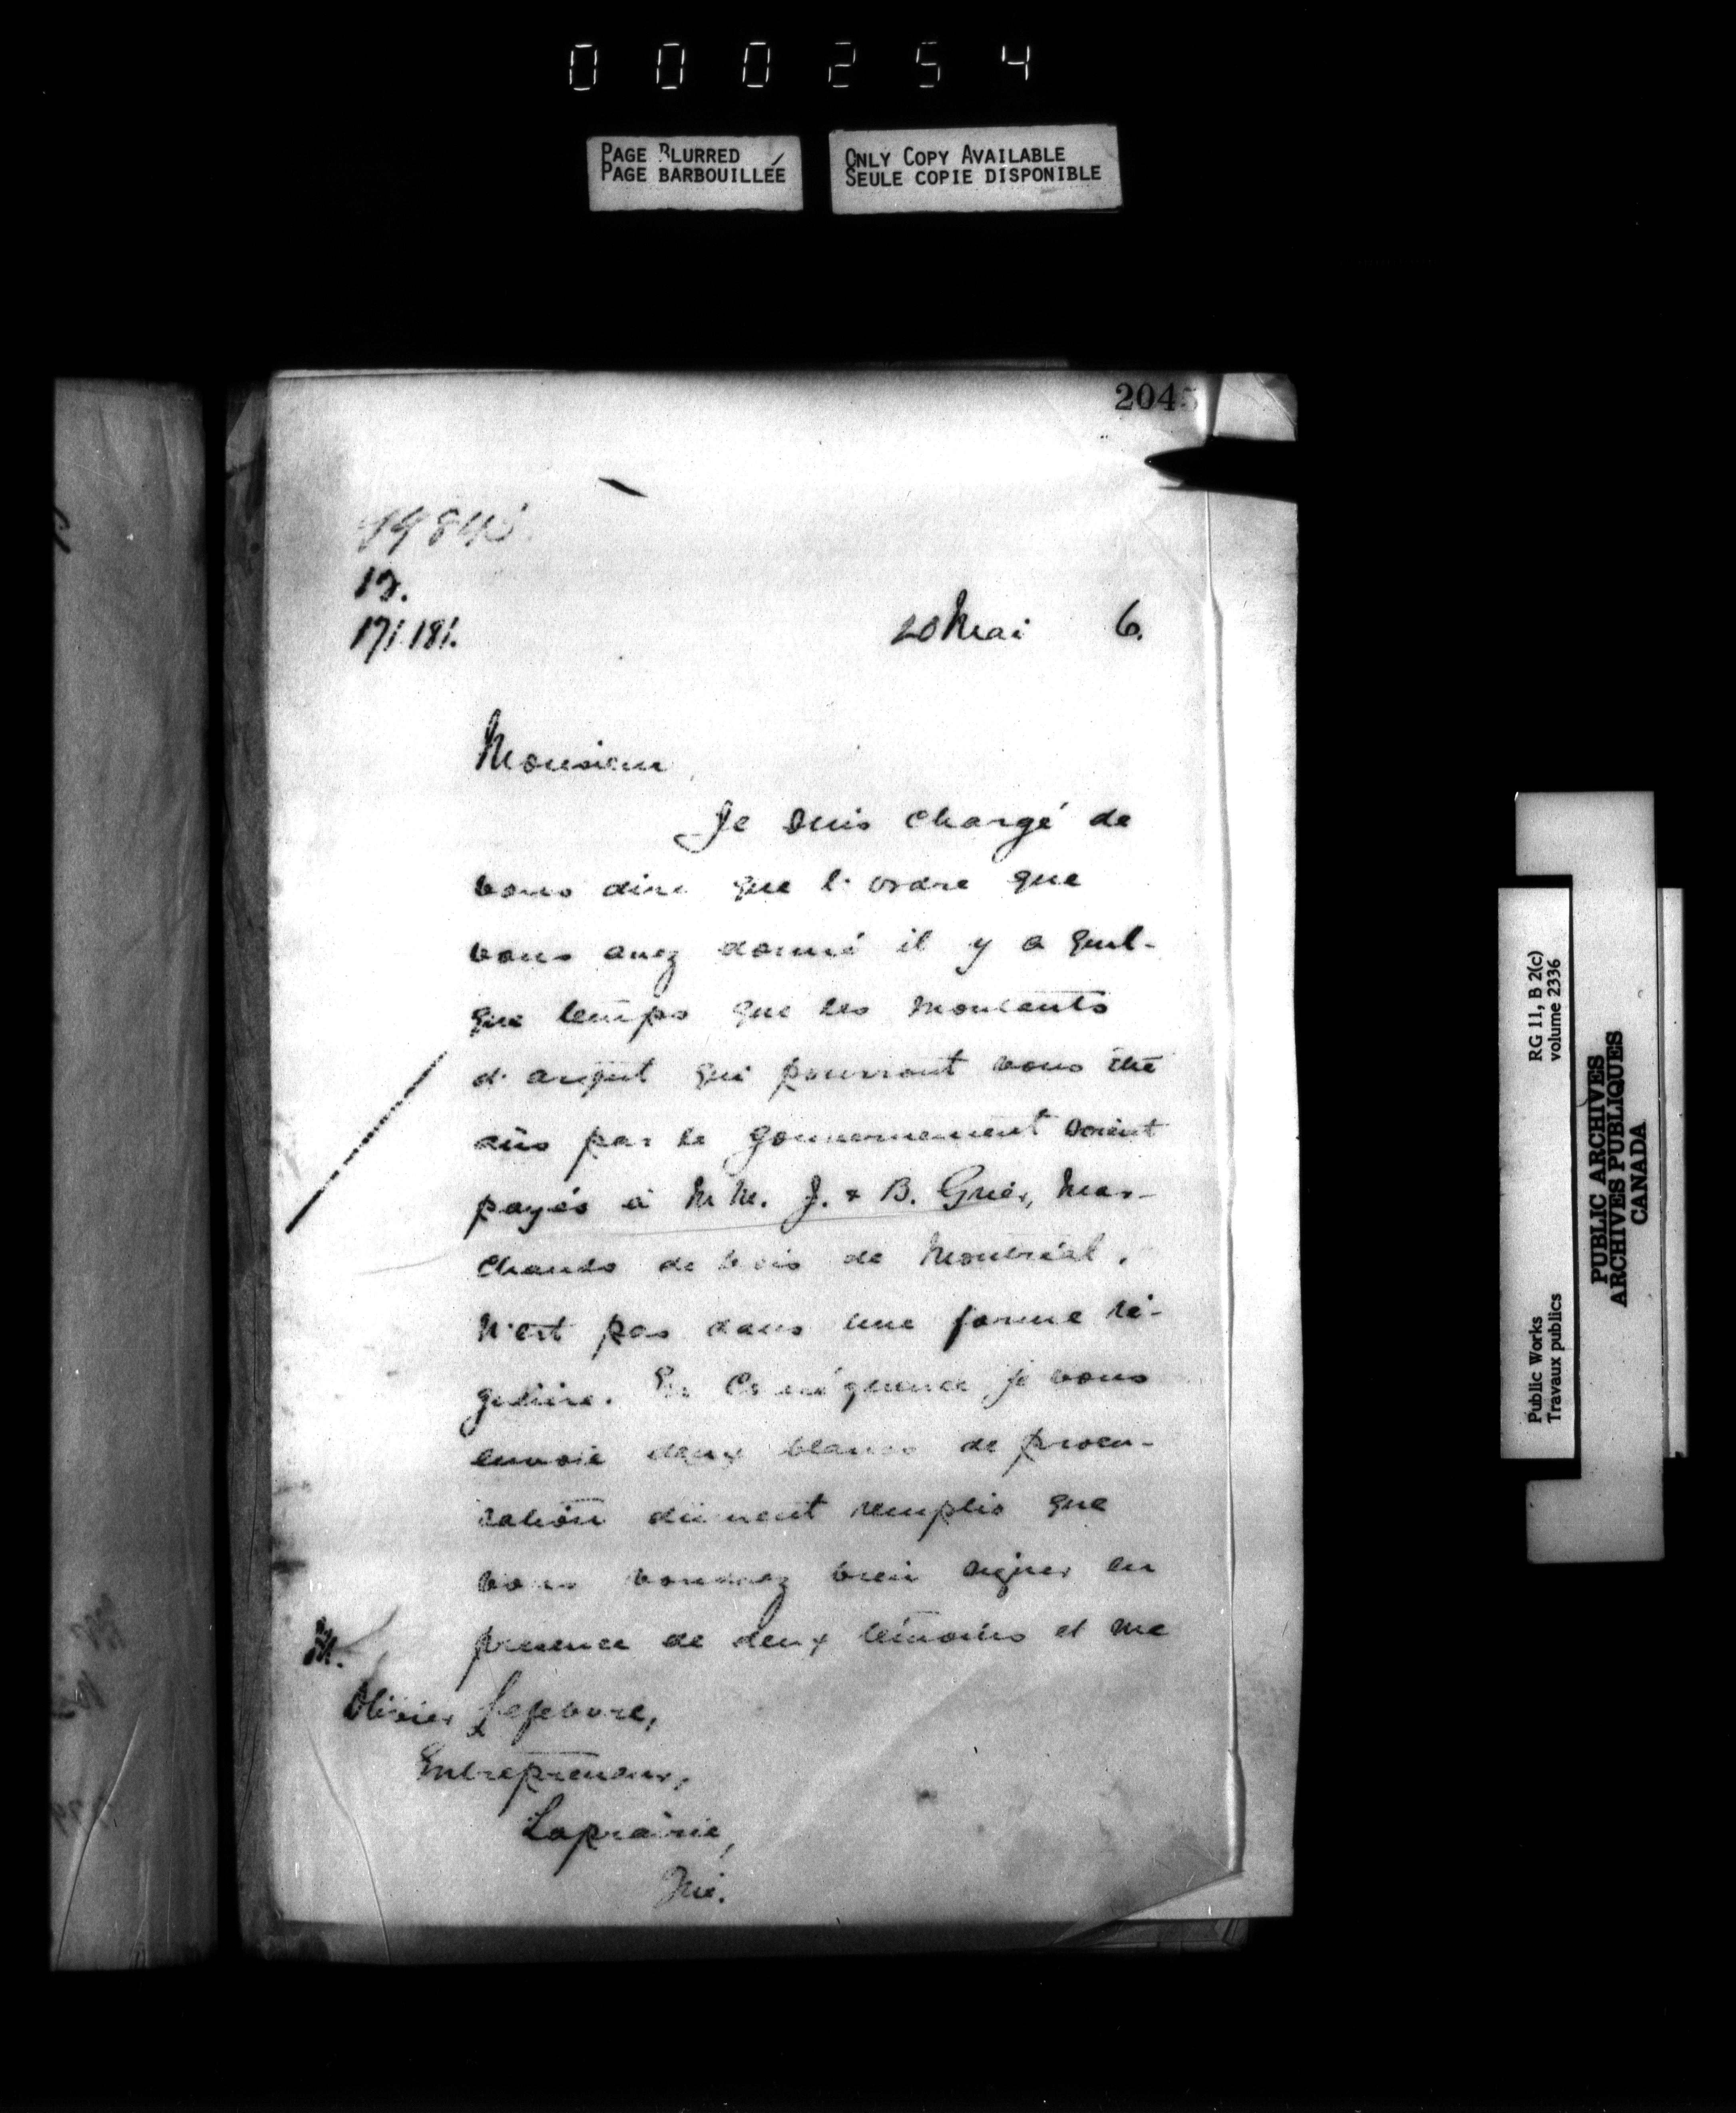 000254
PAGE BLURRED
PAGE BARBOUILLÉE
ONLY COPY AVAILABLE
SEULE COPIE DISPONIBLE
2045
13.
171.181.
20 Mai 6.
Monsieur,
Je suis chargé de
vous dire que l'ordre que
vous avez donné il y a quel-
que temps que les montants
d'argent qui pourront vous être
dûs par le gouvernement soient
payés à M.M. J. & B. Grier, Mar-
chands de bois de Montréal,
n'est pas dans une forme ré-
gulière. En conséquence je vous
envoie deux blancs de procu-
ration dûment remplis que
vous voudrez bien signer en
présence de deux témoins et me
M.
Olivier Lefebvre,
Entrepreneur,
Laprairie,
Qué.
Public Works
Travaux publics
RG 11, B 2(c)
volume 2336
PUBLIC ARCHIVES
ARCHIVES PUBLIQUES
CANADA